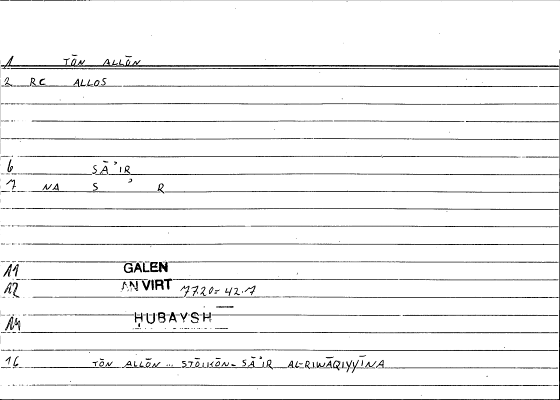 1 TŌN ALLŌN
2 RC ALLOS
6 SĀʾIR
7 NA S ʾ R
11 GALEN
12 AN VIRT 77.20= 42.7
14 ḤUBAYSH
16 TŌN ALLŌN ... STŌIKŌN - SĀʾIR AL-RIWĀQIYYĪNA